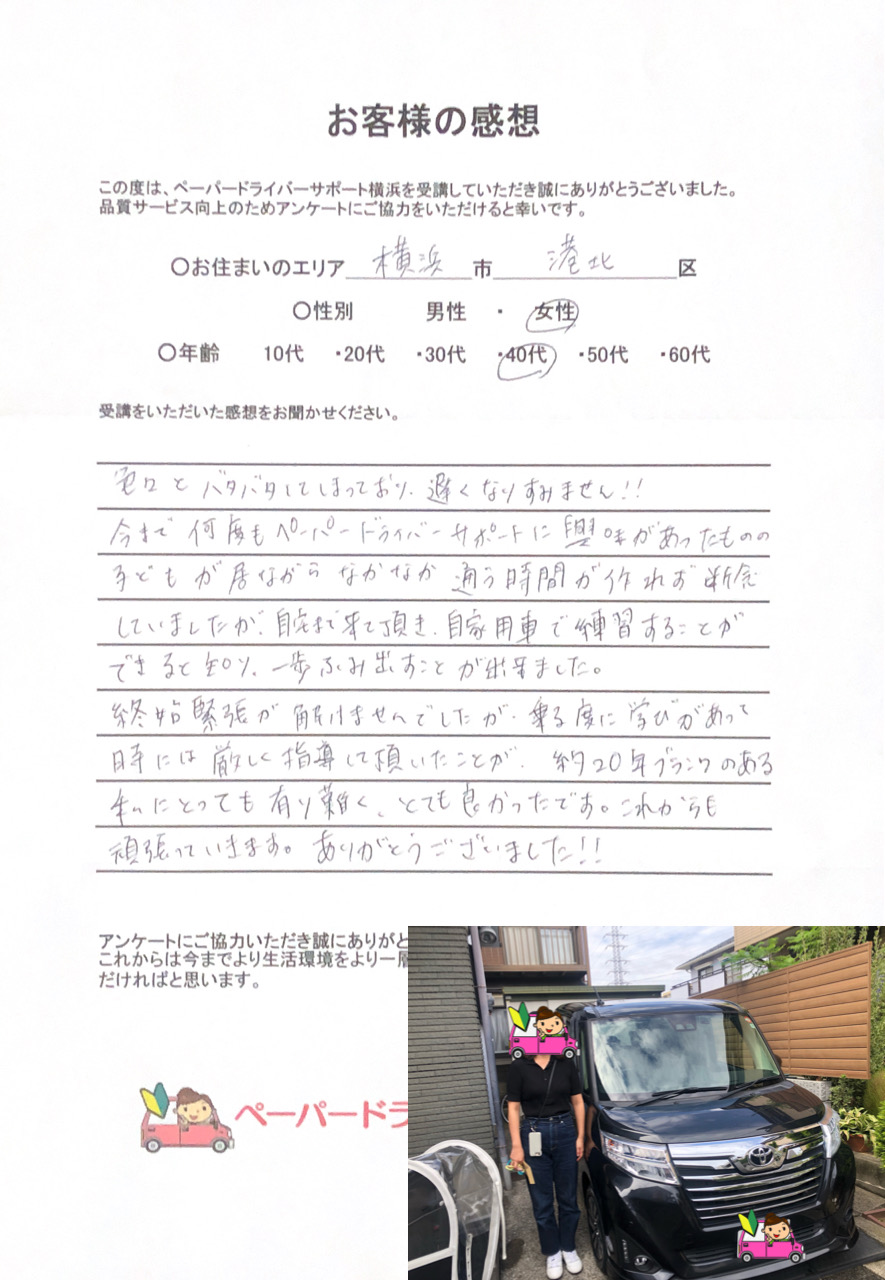 お客様の感想
この度は、ペーパードライバーサポート横浜を受講していただき誠にありがとうございました。
品質サービス向上のためアンケートにご協力をいただけると幸いです。
〇お住まいのエリア 横浜 市 港北 区
〇性別 男性 ・ 女性
〇年齢 10代 ・20代 ・30代 ・40代 ・50代 ・60代
受講をいただいた感想をお聞かせください。
色々とバタバタしてしまっており、遅くなりすみません!!
今まで何度もペーパードライバーサポートに興味があったものの
子どもが居ながらなかなか通う時間が作れず断念
していましたが、自宅まで来て頂き、自家用車で練習することが
できると知り、一歩ふみ出すことが出来ました。
終始緊張が解けませんでしたが、乗る度に学びがあって
時には厳しく指導して頂いたことが、約20年ブランクのある
私にとっても有り難く、とても良かったです。これからも
頑張っていきます。ありがとうございました!!
アンケートにご協力いただき誠にありがと
これからは今までより生活環境をより一層
だければと思います。
ペーパードラ